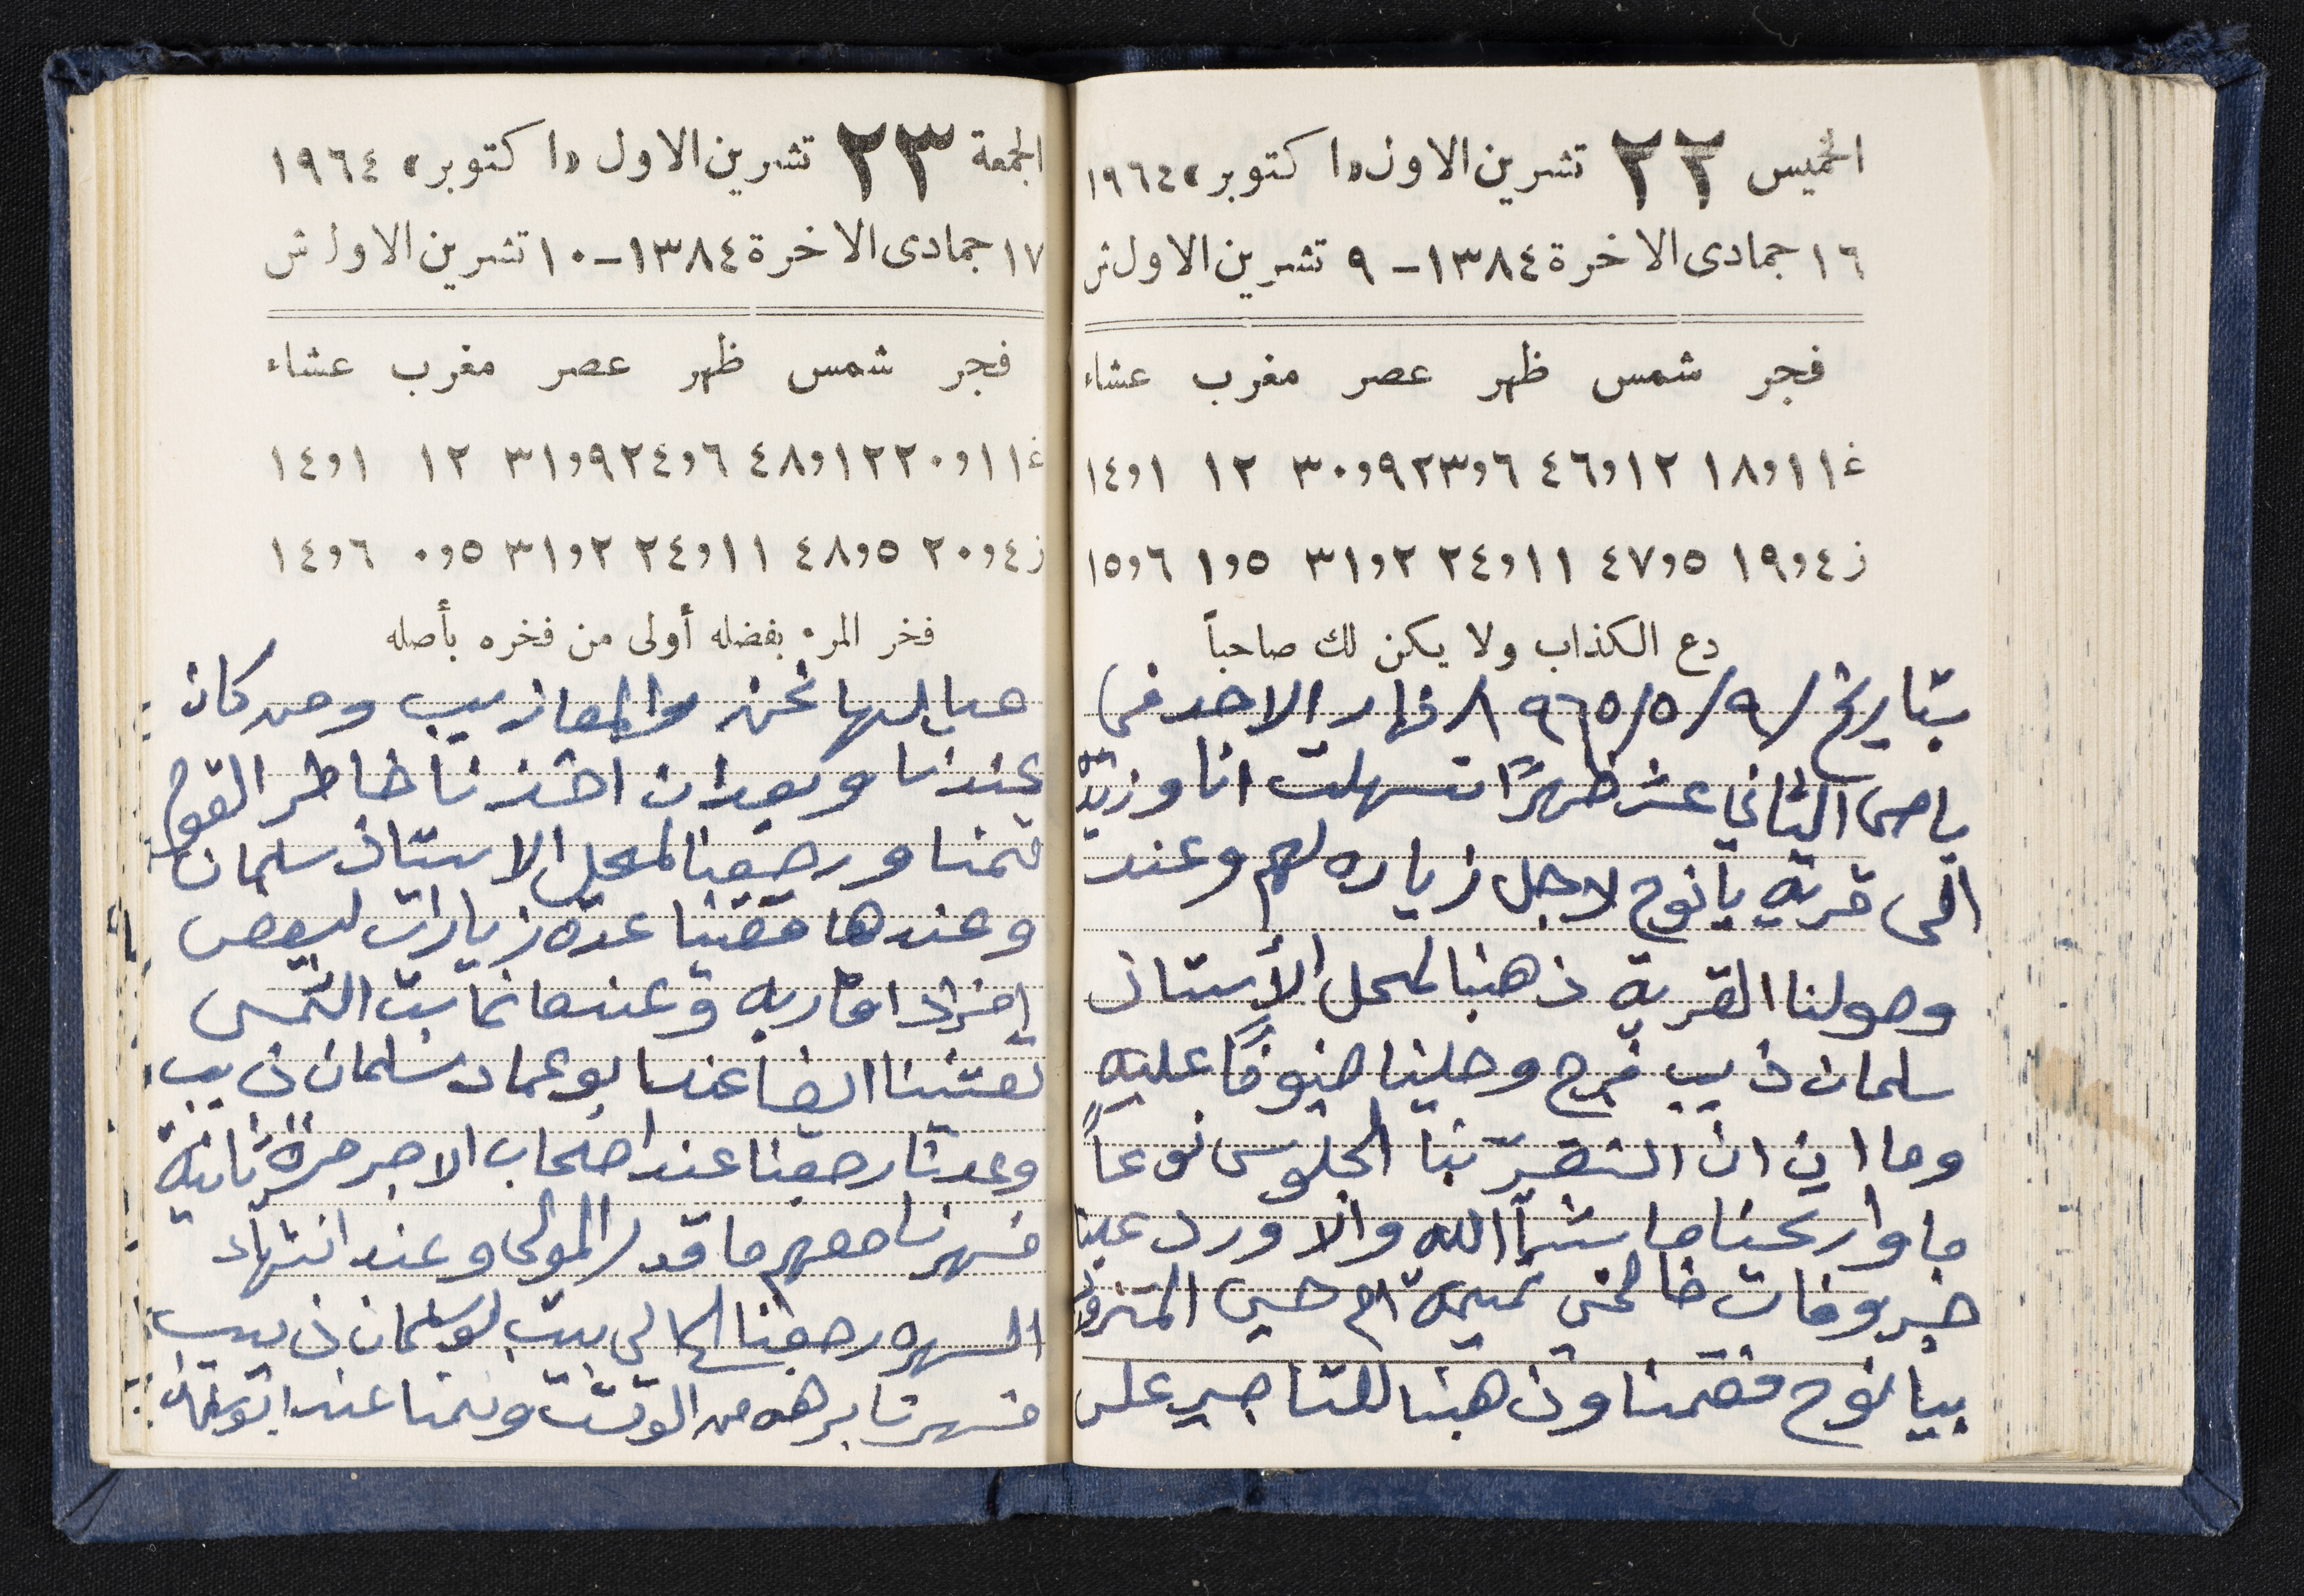 الخميس ٢٢ تشرين الاول «اكتوبر» ١٩٦٤
١٦ جمادى الاخرة ١٣٨٤ – ٩ تشرين الاول ش
فجر شمس ظهر عصر مغرب عشاء
غ ١١و١٨ ١٢و٤٦ ٦و٢٣ ٩و٣٠ ١٢ ١و١٤
ز ٤و١٩ ٥و٤٧ ١١و٢٤ ٢و٣١ ٥و١ ٦و١٥
دع الكذاب ولا يكن لك صاحباً
بتاريخ ٩/٥/٩٦٥ ١ نهار الاحد في
الثاني عشر ظهرًا تسهلت انا و
الى قرية يانوح لاجل زياره لهم وعند
وصولنا القرية ذهبنا لمحل الأستاذ
سلمان ذيب فرج وحلينا ضيوفًا عليه
وما ان ان استقر بنا الجلوس نوعاً
ما وارتحنا ما شاء الله والا ورد علينا
خبر وفات خالتي تميمة ام حسين
بيانوح فقمنا وذهبنا للتاجير على
الجمعة ٢٣ تشرين الاول «اكتوبر» ١٩٦٤
١٧ جمادى الاخرة ١٣٨٤ – ١٠ تشرين الاول ش
فجر شمس ظهر عصر مغرب عشاء
غ ١١و٢٠ ١٢و٤٨ ٦و٢٤ ٩و٣١ ١٢ ١و١٤
ز ٤و٢٠ ٥و٤٨ ١١و٢٤ ٢و٣١ ٥و٠ ٦و١٤
فخر المرء بفضله أولى من فخره بأصله
نحن والمعازيب ومن كان
عندنا وبعد ان اخذنا خاطر القوم
قمنا ورجعنا لمحل الاستاذ سلمان
وعندها قضينا عدة زيارات لبعض
افراد اقاربه وعندما غابت الشمس
تعشينا ايضا عند ابو عماد سلمان ذيب
وعدنا رجعنا عند اصحاب الاجر مرة ثانية
فسهرنا معهم ما قدر المولى وعند انتهاء
السهره رجعنا الى بيت ابو سلمان ذيب
فسهرنا برهه من الوقت ونمنا عند ابو سلمان